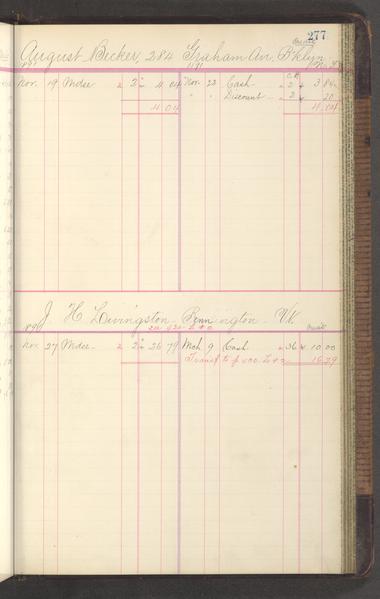 277
August Becker, 284 Graham Av. B'klyn
Nov. 19 Mdse 4 04 Nov. 23 Cash 2 3 84
" " Discount 2 20
4 04 4 04
J H Livingston Pennington Vt.
Nov. 27 Mdse 26 79 Mch 9 Cash 36 10 00
Transf to p 16 79